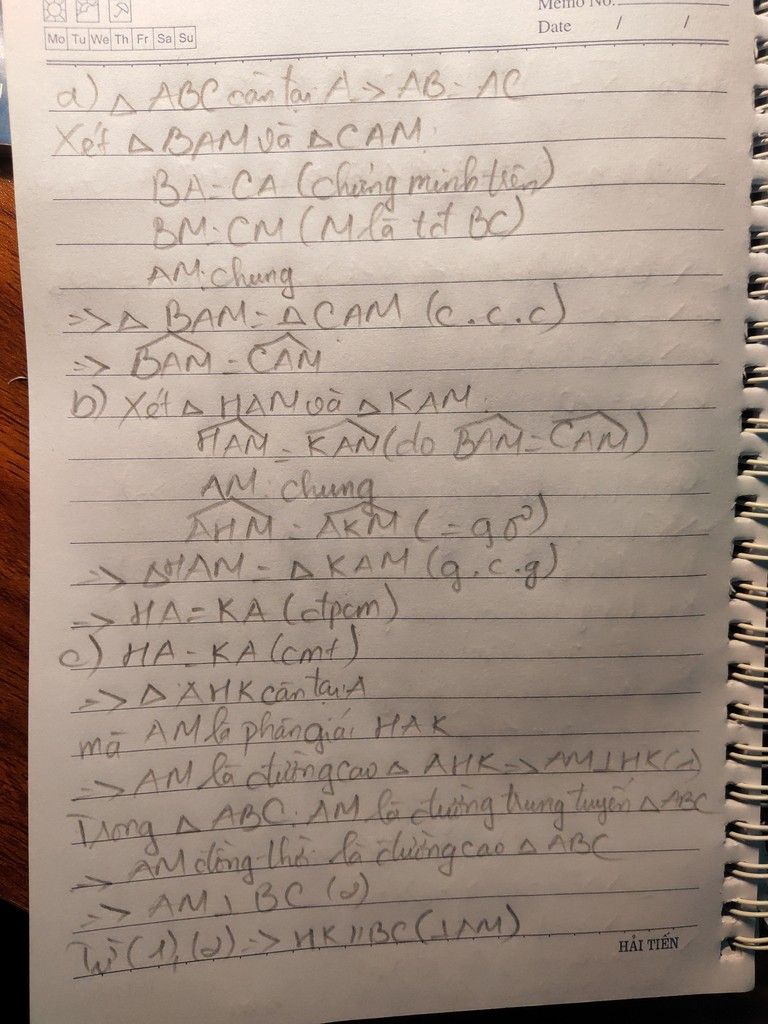 Memo No.
Mo Tu We Th Fr Sa Su
Date / /
a) △ ABC cân tại A => AB = AC
Xét △ BAM và △ CAM:
BA = CA (chứng minh trên)
BM = CM (M là tđ BC)
AM: chung
=> △ BAM = △ CAM (c.c.c)
=> BAM = CAM
b) Xét △ HAM và △ KAM:
HAM = KAM (do BAM = CAM)
AM: chung
AHM = AKM (= 90°)
=> △HAM = △ KAM (g.c.g)
=> HA = KA (đpcm)
c) HA = KA (cmt)
=> △ AHK cân tại A
mà AM là phân giác HAK
=> AM là đường cao △ AHK => AM ⊥ HK (1)
Trong △ ABC: AM là đường trung tuyến △ ABC
=> AM đồng thời là đường cao △ ABC
=> AM ⊥ BC (2)
Từ (1), (2) => HK // BC (⊥ AM)
HẢI TIẾN